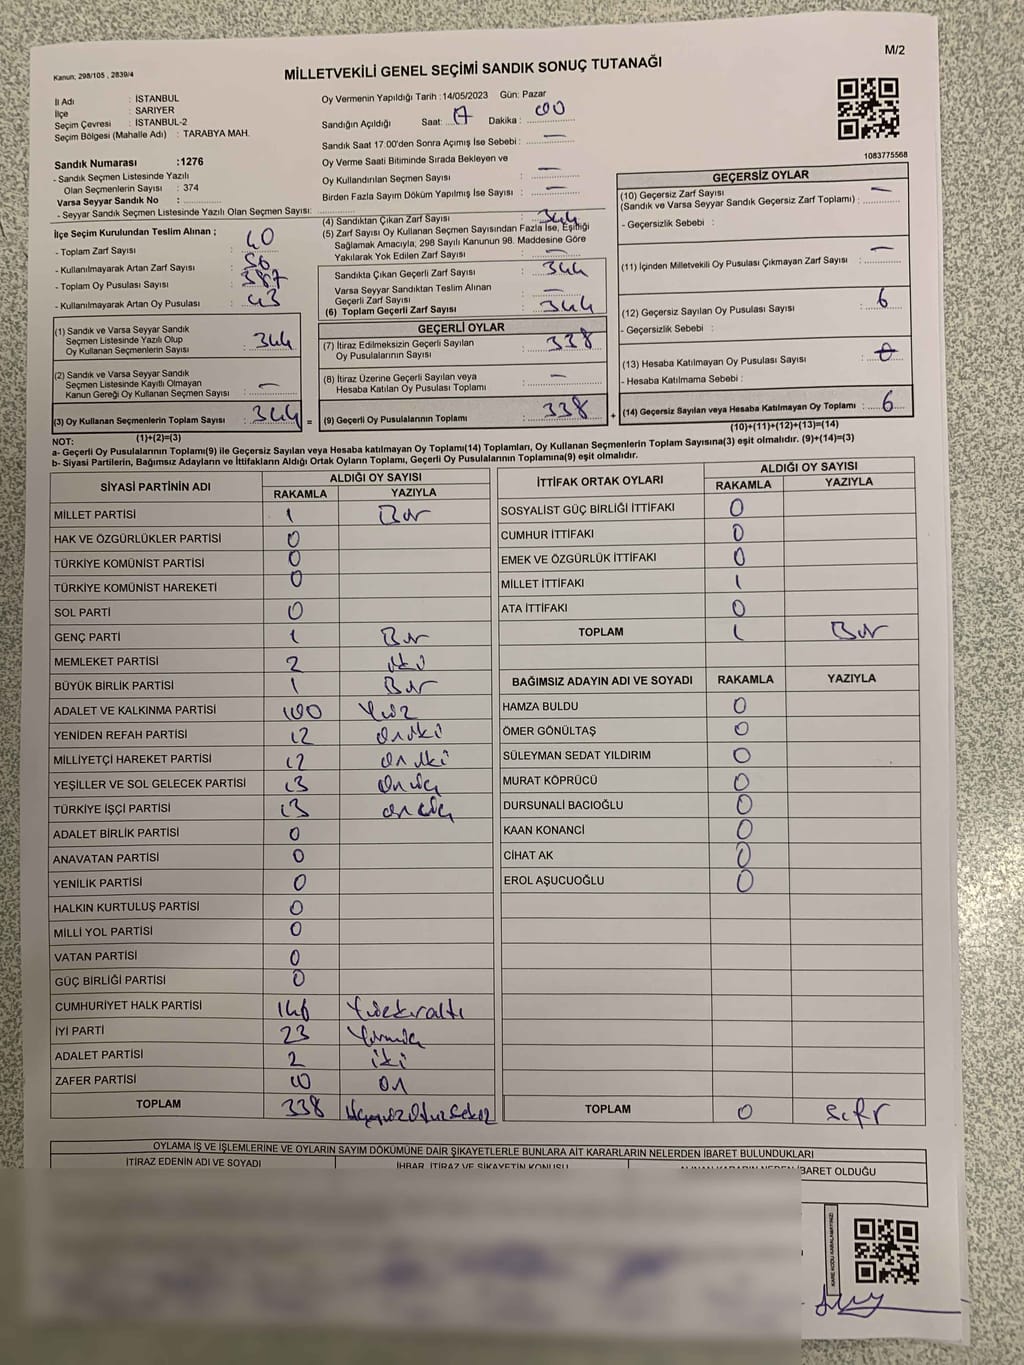 Kanun; 298/105 , 2839/4
M/2
MİLLETVEKİLİ GENEL SEÇİMİ SANDIK SONUÇ TUTANAĞI
İl Adı : İSTANBUL
İlçe : SARIYER
Seçim Çevresi : İSTANBUL-2
Seçim Bölgesi (Mahalle Adı) : TARABYA MAH.
Oy Vermenin Yapıldığı Tarih :14/05/2023 Gün: Pazar
Sandığın Açıldığı Saat: 17 Dakika : 00
Sandık Saat 17:00'den Sonra Açımış İse Sebebi : —
Oy Verme Saati Bitiminde Sırada Bekleyen ve
Oy Kullandırılan Seçmen Sayısı : —
Birden Fazla Sayım Döküm Yapılmış İse Sayısı : —
1083775568
Sandık Numarası :1276
- Sandık Seçmen Listesinde Yazılı
Olan Seçmenlerin Sayısı : 374
Varsa Seyyar Sandık No :
- Seyyar Sandık Seçmen Listesinde Yazılı Olan Seçmen Sayısı:
İlçe Seçim Kurulundan Teslim Alınan ;
- Toplam Zarf Sayısı :
- Kullanılmayarak Artan Zarf Sayısı : 56
- Toplam Oy Pusulası Sayısı : 387
- Kullanılmayarak Artan Oy Pusulası : 43
(1) Sandık ve Varsa Seyyar Sandık
Seçmen Listesinde Yazılı Olup
Oy Kullanan Seçmenlerin Sayısı : 344
(2) Sandık ve Varsa Seyyar Sandık
Seçmen Listesinde Kayıtlı Olmayan
Kanun Gereği Oy Kullanan Seçmen Sayısı : —
(3) Oy Kullanan Seçmenlerin Toplam Sayısı : 344 =
(1)+(2)=(3)
(4) Sandıktan Çıkan Zarf Sayısı : 344
(5) Zarf Sayısı Oy Kullanan Seçmen Sayısından Fazla İse, Eşitliği
Sağlamak Amacıyla, 298 Sayılı Kanunun 98. Maddesine Göre
Yakılarak Yok Edilen Zarf Sayısı : —
Sandıkta Çıkan Geçerli Zarf Sayısı : 344
Varsa Seyyar Sandıktan Teslim Alınan
Geçerli Zarf Sayısı : —
(6) Toplam Geçerli Zarf Sayısı : 344
GEÇERLİ OYLAR
(7) İtiraz Edilmeksizin Geçerli Sayılan
Oy Pusulalarının Sayısı : 338
(8) İtiraz Üzerine Geçerli Sayılan veya
Hesaba Katılan Oy Pusulası Toplamı : —
(9) Geçerli Oy Pusulalarının Toplamı : 338 +
GEÇERSİZ OYLAR
(10) Geçersiz Zarf Sayısı
(Sandık ve Varsa Seyyar Sandık Geçersiz Zarf Toplamı) : —
- Geçersizlik Sebebi :
(11) İçinden Milletvekili Oy Pusulası Çıkmayan Zarf Sayısı : —
(12) Geçersiz Sayılan Oy Pusulası Sayısı : 6
- Geçersizlik Sebebi :
(13) Hesaba Katılmayan Oy Pusulası Sayısı :
- Hesaba Katılmama Sebebi :
(14) Geçersiz Sayılan veya Hesaba Katılmayan Oy Toplamı : 6
(10)+(11)+(12)+(13)=(14)
NOT:
a- Geçerli Oy Pusulalarının Toplamı(9) ile Geçersiz Sayılan veya Hesaba katılmayan Oy Toplamı(14) Toplamları, Oy Kullanan Seçmenlerin Toplam Sayısına(3) eşit olmalıdır. (9)+(14)=(3)
b- Siyasi Partilerin, Bağımsız Adayların ve İttifakların Aldığı Ortak Oyların Toplamı, Geçerli Oy Pusulalarının Toplamına(9) eşit olmalıdır.
SİYASİ PARTİNİN ADI
ALDIĞI OY SAYISI
RAKAMLA YAZIYLA
MİLLET PARTİSİ 1 Bir
HAK VE ÖZGÜRLÜKLER PARTİSİ 0
TÜRKİYE KOMÜNİST PARTİSİ 0
TÜRKİYE KOMÜNİST HAREKETİ 0
SOL PARTİ 0
GENÇ PARTİ 1 Bir
MEMLEKET PARTİSİ 2 iki
BÜYÜK BİRLİK PARTİSİ 1 Bir
ADALET VE KALKINMA PARTİSİ 100 Yüz
YENİDEN REFAH PARTİSİ 12 oniki
MİLLİYETÇİ HAREKET PARTİSİ 12 oniki
YEŞİLLER VE SOL GELECEK PARTİSİ 13 onüç
TÜRKİYE İŞÇİ PARTİSİ 13 onüç
ADALET BİRLİK PARTİSİ 0
ANAVATAN PARTİSİ 0
YENİLİK PARTİSİ 0
HALKIN KURTULUŞ PARTİSİ 0
MİLLİ YOL PARTİSİ 0
VATAN PARTİSİ 0
GÜÇ BİRLİĞİ PARTİSİ 0
CUMHURİYET HALK PARTİSİ 146 Yüzkırkaltı
İYİ PARTİ 23 Yirmiüç
ADALET PARTİSİ 2 iki
ZAFER PARTİSİ 10 on
TOPLAM 338 Üçyüzotuzsekiz
İTTİFAK ORTAK OYLARI
ALDIĞI OY SAYISI
RAKAMLA YAZIYLA
SOSYALİST GÜÇ BİRLİĞİ İTTİFAKI 0
CUMHUR İTTİFAKI 0
EMEK VE ÖZGÜRLÜK İTTİFAKI 0
MİLLET İTTİFAKI 1
ATA İTTİFAKI 0
TOPLAM 1 Bir
BAĞIMSIZ ADAYIN ADI VE SOYADI RAKAMLA YAZIYLA
HAMZA BULDU 0
ÖMER GÖNÜLTAŞ 0
SÜLEYMAN SEDAT YILDIRIM 0
MURAT KÖPRÜCÜ 0
DURSUNALİ BACIOĞLU 0
KAAN KONANCİ 0
CİHAT AK 0
EROL AŞUCUOĞLU 0
TOPLAM 0 Sıfır
OYLAMA İŞ VE İŞLEMLERİNE VE OYLARIN SAYIM DÖKÜMÜNE DAİR ŞİKAYETLERLE BUNLARA AİT KARARLARIN NELERDEN İBARET BULUNDUKLARI
İTİRAZ EDENİN ADI VE SOYADI
İHBAR, İTİRAZ VE ŞİKAYETİN KONUSU
ALINAN KARARIN NEDEN İBARET OLDUĞU
KARE KODU KARALAMAYINIZ!